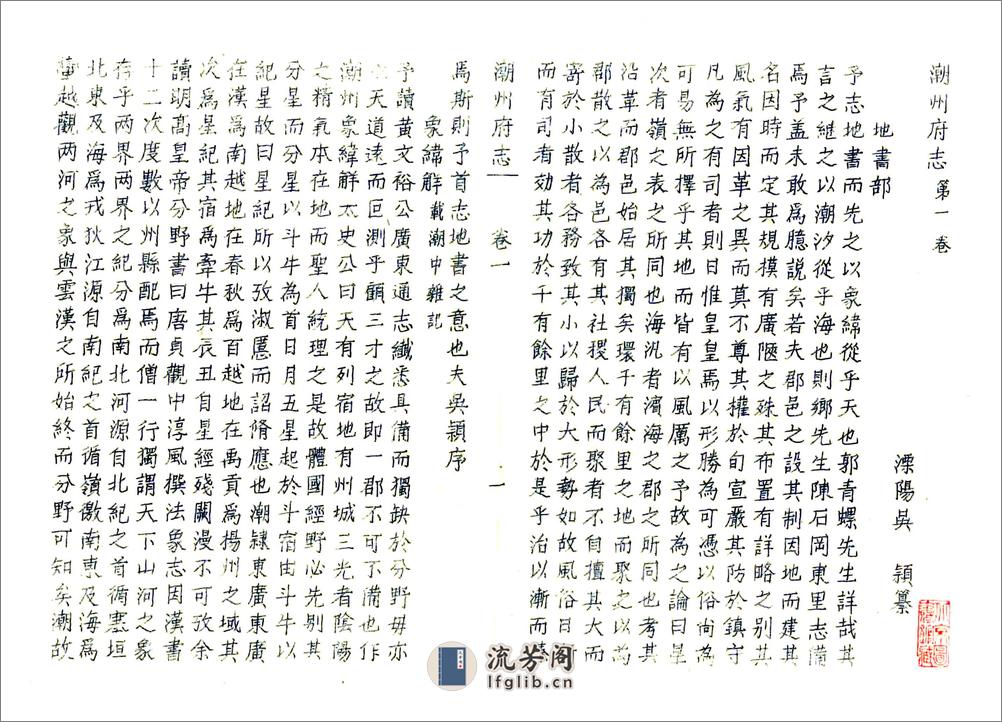 潮州府志第一卷
地書部
溧陽吳 穎纂
予志地書而先之以象緯從乎天也郭青螺先生詳哉其
言之繼之以潮汐從乎海也則鄉先生陳石岡東里志備
焉予盖未敢爲臆說矣若夫郡邑之設其制因地而建其
名因時而定其規模有廣陿之殊其布置有詳略之别其
風氣有因革之異而莫不尊其權於旬宣嚴其防於鎮守
凡為之有司者則日惟皇皇焉以形勝為可憑以俗尚為
可易無所擇乎其地而皆有以風厲之予故為之論曰是
次者嶺之表之所同也海汎者濱海之郡之所同也考其
沿革而郡邑始居其獨矣環千有餘里之地而聚之以為
郡散之以為邑各有其社稷人民而聚者不自擅其大而
寄於小散者各務致其小以歸於大形勢如故風俗日
而有司者効其功於千有餘里之中於是乎治以漸而
潮州府志 卷一 一
焉斯則予首志地書之意也夫吳穎序
象緯解 載潮中雜記
予讀黄文裕公廣東通志纖悉具備而獨缺於分野毋亦
天道遠而叵測乎顧三才之故即一郡不可不備也作
潮州象緯解太史公曰天有列宿地有州域三光者陰陽
之精氣本在地而聖人統理之是故體國經野必先别其
分星而分星以斗牛為首日月五星起於斗宿由斗牛以
紀星故曰星紀所以攷淑慝而詔脩應也潮隸東廣東廣
在漢爲南越地在春秋爲百越地在禹貢爲揚州之域其
次爲星紀其宿爲牽牛其辰丑自星經殘闕漫不可攷余
讀明髙皇帝分野書曰唐貞觀中淳風撰法象志因漢書
十二次度數以州縣配焉而僧一行獨謂天下山河之象
存乎两界两界之紀分爲南北河源自北紀之首循塞垣
北東及海爲戎狄江源自南紀之首循嶺徼南東及海爲
蠻越觀两河之象與雲漢之所始終而分野可知矣潮故
流芳阁
lfglib.cn